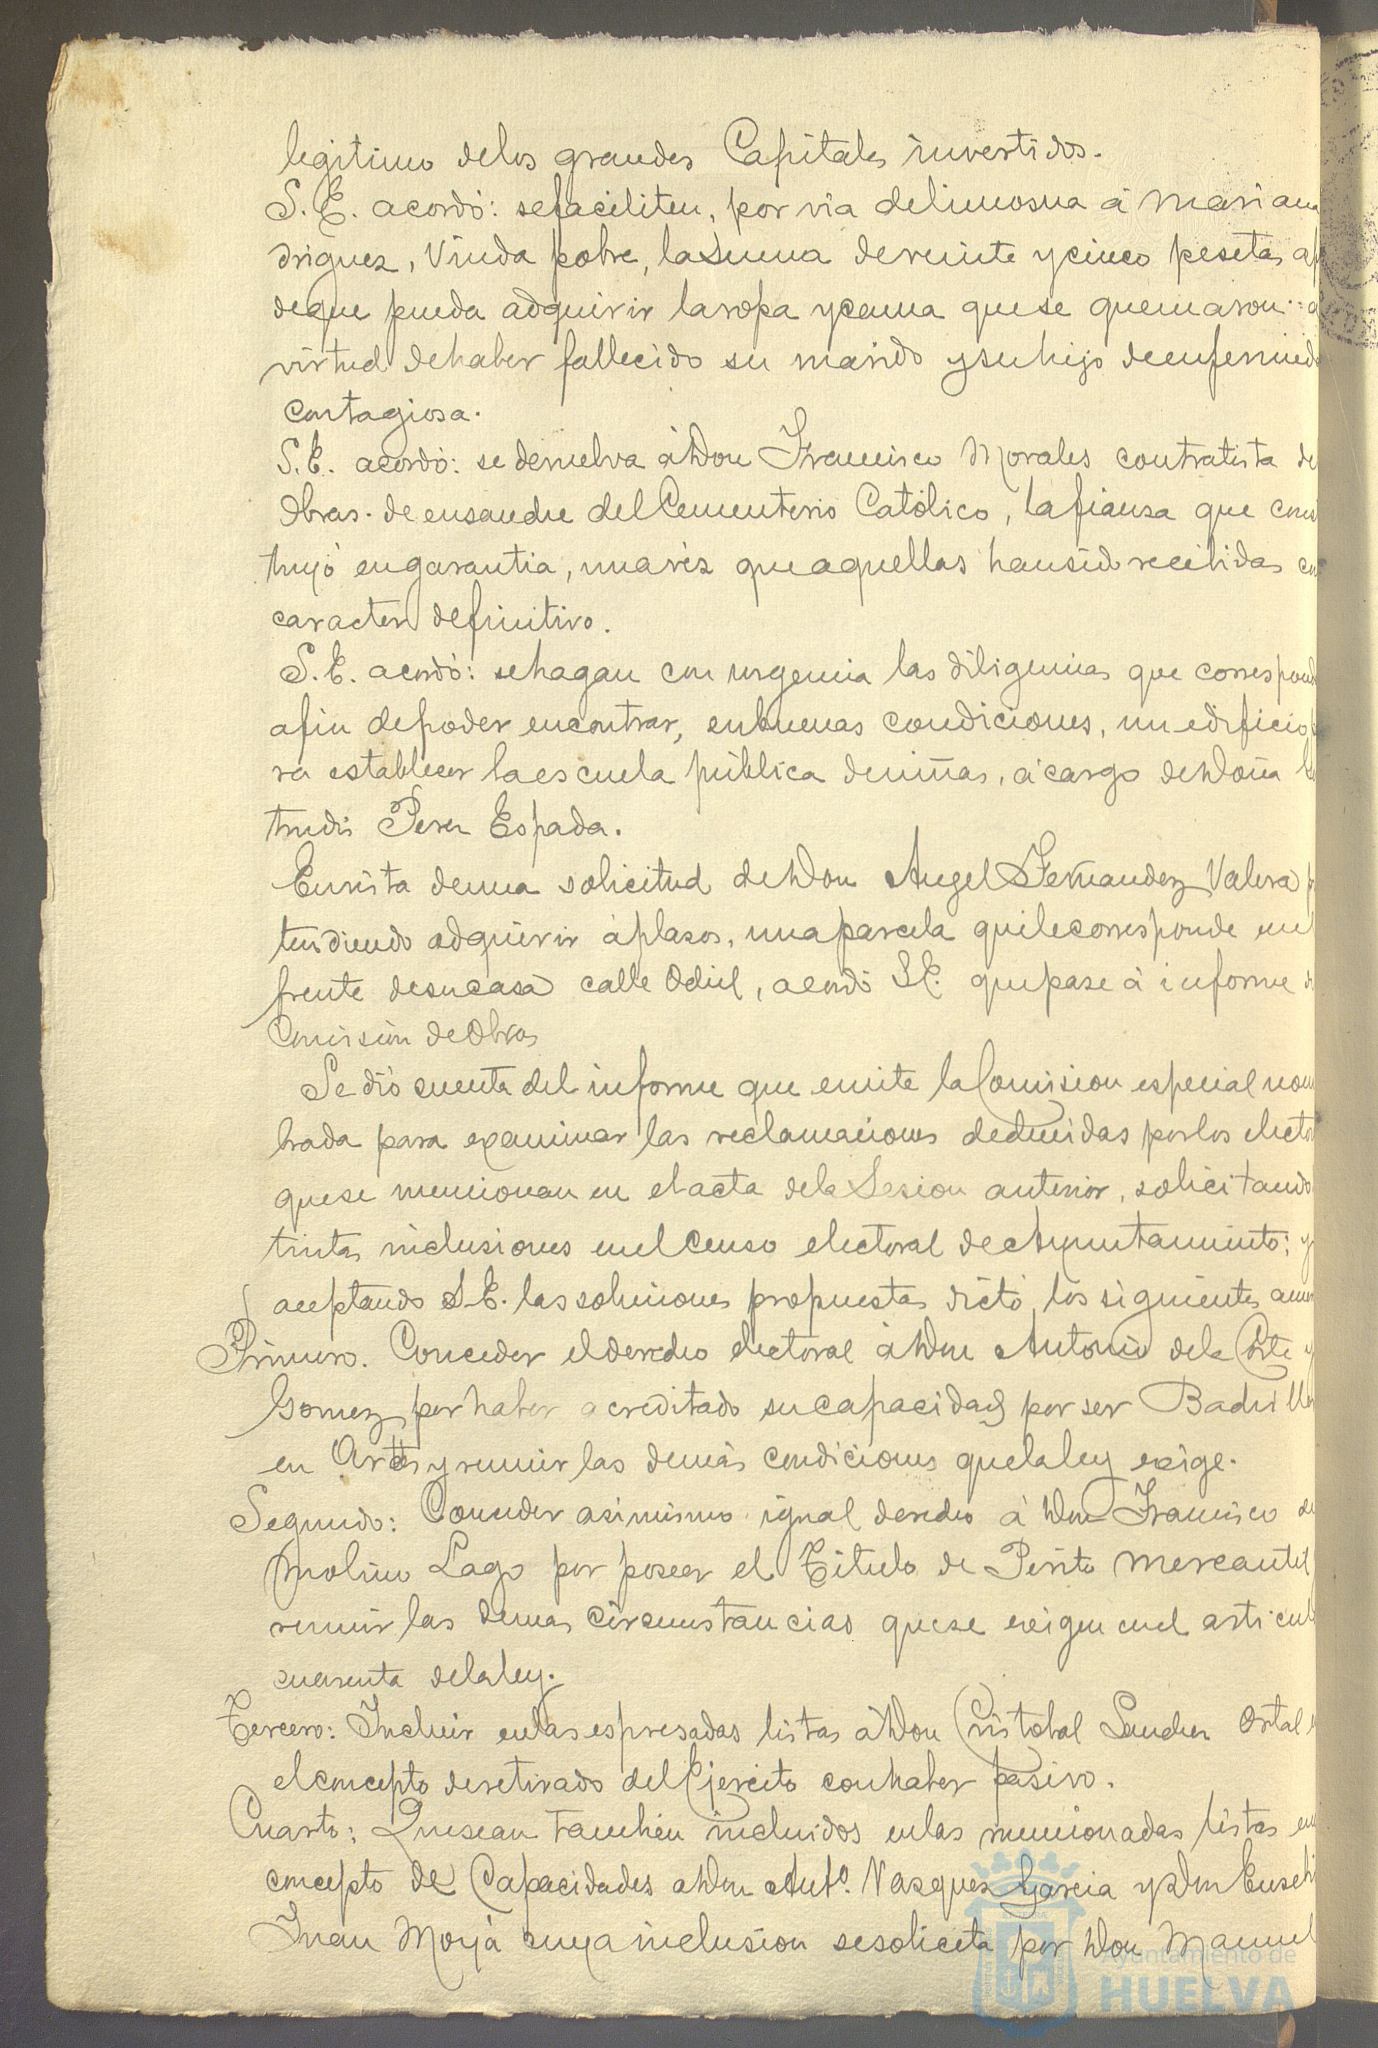 legitimo delos grandes Capitales invertidos.
S. E. acordó: sefaciliten, por via delimosna á Mariana
driguez, Viuda pobre, laSuma deveinte ycinco pesetas
deque pueda adquirir laropa ycama quese quemaron
virtud dehaber fallecido su marido ysuhijo deenfermed
contagiosa.
S. E. acordó: se devuelva áDon Francisco Morales contratista de
Obras de ensanche delCementerio Católico, lafianza que cons
tuyó engarantia, unavéz queaquellas hansido recibidas con
caracter definitivo.
S. E. acordó: sehagan con urgencia las diligencias que correspond
afin depoder encontrar, enbuenas condiciones, un edificio
ra establecer laescuela pública deniñas, ácargo deDoña
trudis Perez Espada.
Envista deuna solicitud deDon Angel Fernandez Valera
tendiendo adquirir áplazos, unaparcela quelecorresponde enel
frente desucasa calle Odiel, acordó S.E. quepase á informe
Comision deObras
Se dió cuenta del informe que emite laComision especial nom
brada para examinar las reclamaciones deducidas porlos elector
quese mencionan en elacta dela Sesion anterior, solicitando
tintas inclusiones enelCenso electoral deAyuntamiento; y
aceptando S.E. las soluciones propuestas dictó los siguientes acuer
Primero. Conceder elderecho electoral áDon Antonio dela Corte y
Gomez por haber acreditado sucapacidad por ser Bachiller
en Artes y reunir las demás condiciones quelaley exige.
Segundo: Conceder asimismo igual derecho á Don Francisco de
Molino Lago por poseer el Titulo de Perito Mercantil
reunir las demas circunstancias quese exigen enel articulo
cuarenta delaley.
Tercero: Incluir enlas espresadas listas áDon Cristobal Sanchez Ortal
elconcepto deretirado delEjercito conhaber pasivo.
Cuarto: Quesean tambien incluidos enlas mencionadas listas en
concepto de Capacidades aDon Antº. Vazquez Garcia yDon Eusebi
Juan Moyá cuyainclusion sesolicita por Don Manuel
Ayuntamiento de
HUELVA